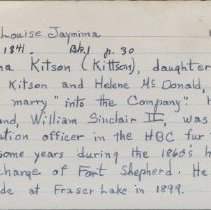 Louise Jaymima
1841. Bk.1 p.30
na Kitson (Kittson), daughter
Kitson and Helene McDonald,
marry "into the Company" h
nd, William Sinclair II, was
ation officer in the HBC fur
some years during the 1860's h
charge of Fort Shepherd. He
de at Fraser Lake in 1899.